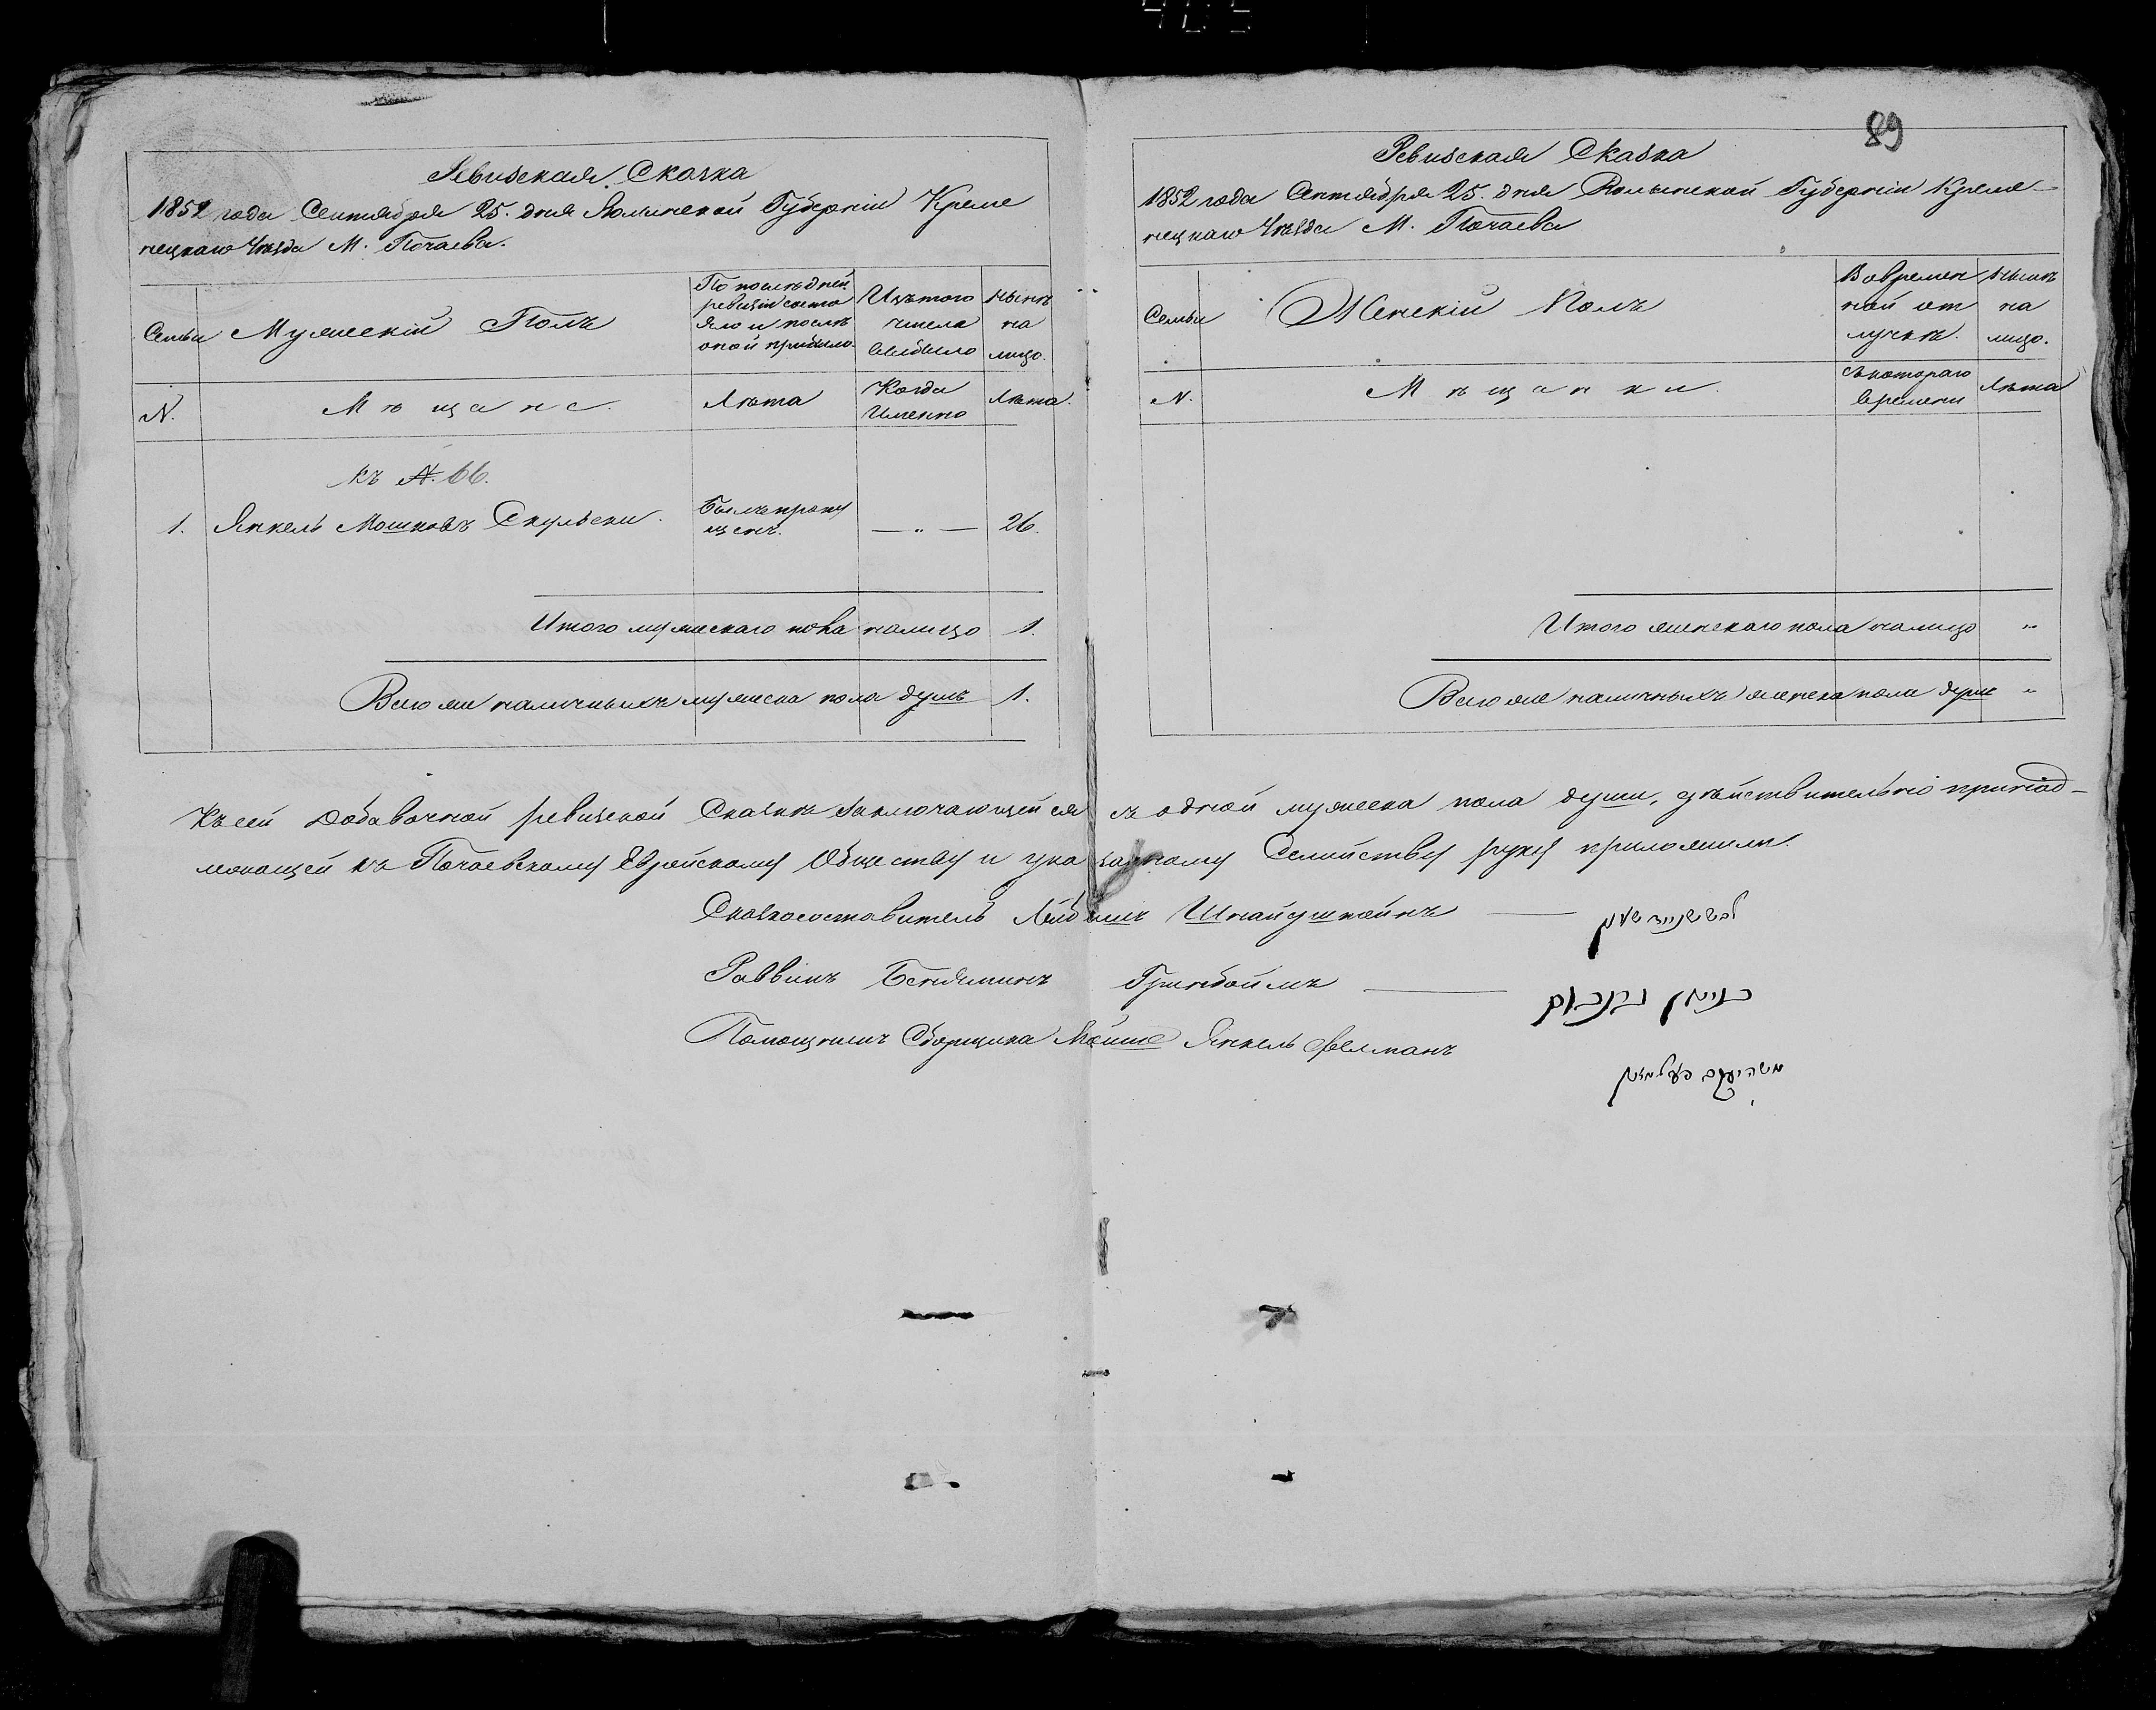 89
Ревизская Сказка
1852 года Сентября 25. дня Волынской Губерніи Креме
нецкаго Уѣзда М. Почаева.
Семьи
Мужескій Полъ
По послѣдней
ревизіи состо
яло и послѣ
оной прибыло
Изъ того
числа
выбыло
Нынѣ
на
лицо.
N.
Мѣщане.
Лѣта
Когда
Именно
Лѣта.
Къ N. 66.
1. Янкель Мошковъ Скульски.
Былъ пропу
щенъ.
— „ —
26.
Итого мужескаго пола налицо 1.
Всего же наличныхъ мужеска пола душъ 1.
Ревизская Сказка
1852 года Сентября 25. дня Волынской Губерніи Креме-
нецкаго Уѣзда М. Почаева
Семьи
Женскій Полъ
Вовремен
ной от
лучкѣ.
Нынѣ
на
лицо.
N.
Мѣщанки.
Съ котораго
времени
Лѣта
Итого женскаго пола налицо „
Всего же наличныхъ женска пола душъ „
Къ сей Добавочной ревизской Сказкѣ заключающейся въ одной мужеска пола души, дѣйствительно принад-
лежащей къ Почаевскому Еврейскому Обществу и указанному Семейству руку приложили.
Сказкосоставитель Лейбишъ Шнайдштейнъ —
Раввинъ Беньяминъ Гринбоймъ —
בנימין גרינבוים
Помощникъ Сборщика Мойше Янкель Фелманъ
משה יעקב פעלמאן